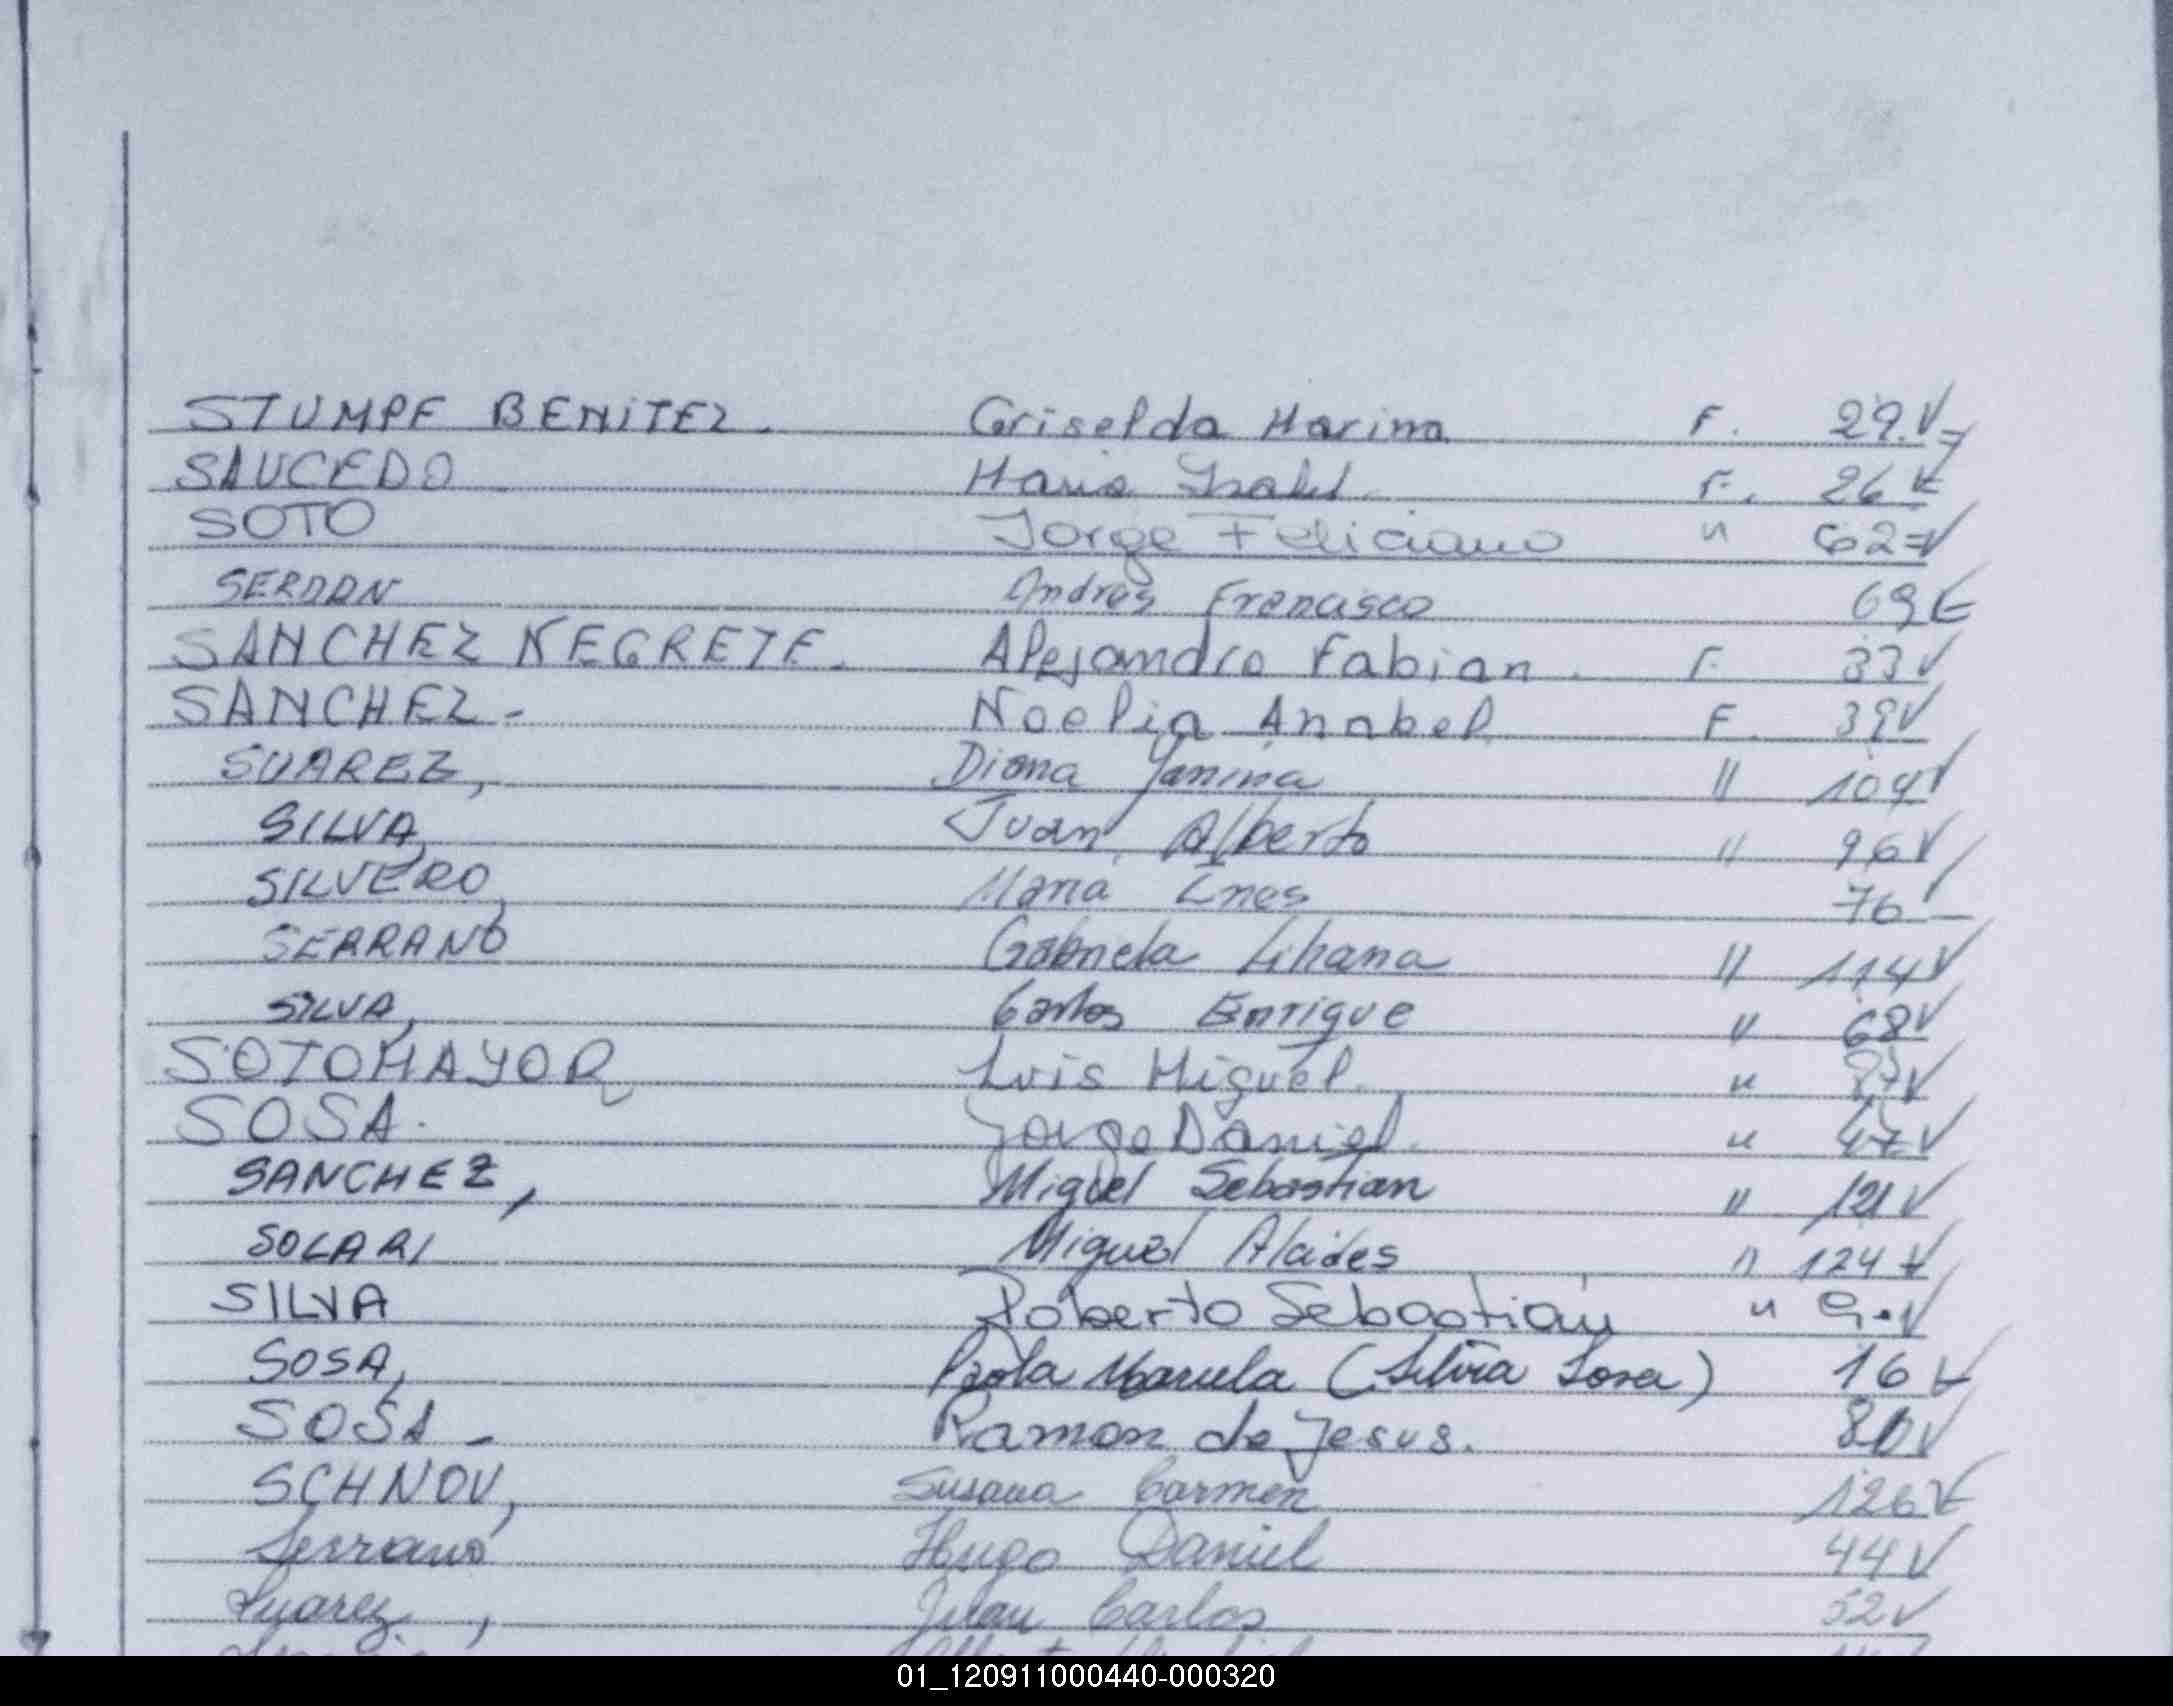 STUMPF BENITEZ. Griselda Marina F. 29.V=
SAUCEDO Maria Isabel. F. 26 V
SOTO Jorge Feliciano " 62=V
SERDAN Andres Francisco 69 V
SANCHEZ NEGRETE. Alejandro Fabian. F. 33 V
SANCHEZ - Noelia Anabel F. 39 V
SUAREZ, Diana Yanina " 104 V
SILVA, Juan Alberto " 96 V
SILVERO, Maria Ines 76 V
SERRANO Gabriela Liliana " 114 V
SILVA, Carlos Enrique " 68 V
SOTOMAYOR Luis Miguel. " 87 V
SOSA. Jorge Daniel. " 47 V
SANCHEZ, Miguel Sebastian " 121 V
SOLARI Miguel Alcides " 124 V
SILVA Roberto Sebastian " V
SOSA, Paola Mariela (Silvia Sosa) 16 V
SOSA - Ramon de Jesus. 80 V
SCHNOV, Susana Carmen 126 V
Serrano Hugo Daniel 44 V
Suarez, Juan Carlos 52 V
01_120911000440-000320